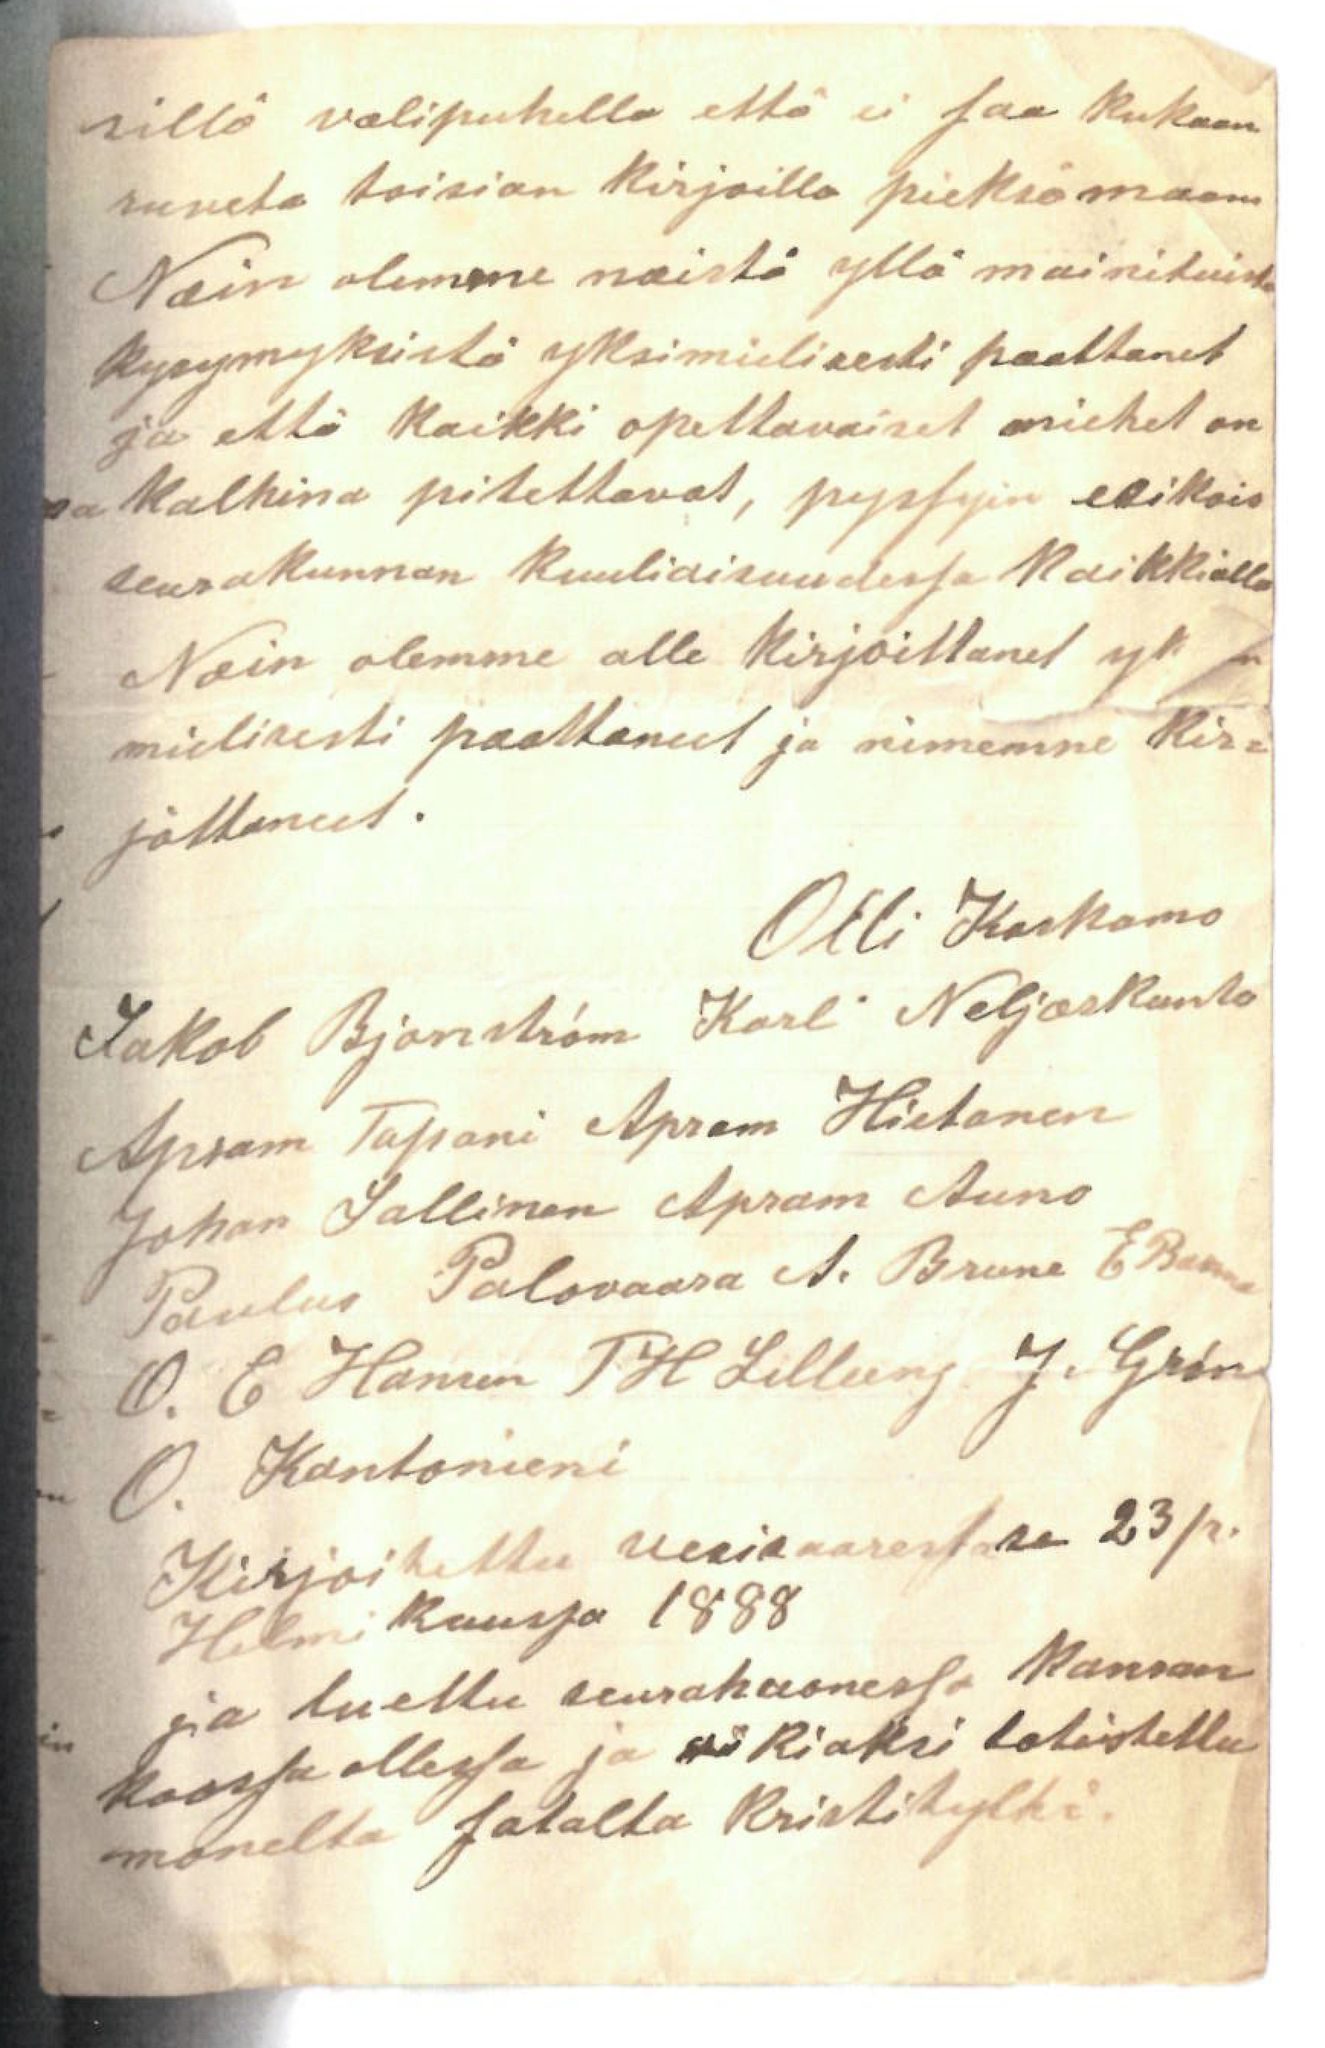 sillä välipuhella että ei saa kukaan
ruveta toisian kirjoilla pieksämaan
Näin olemme näistä yllä mainituista
kysymyksistä yksimielisesti paattanet
ja että kaikki opettavaiset miehet on
kalhina pitettavat, pyssyin esikois
seurakunnan kuuliaisuudessa kaikkialla
Näin olemme alle kirjoittanet yk
mielisesti paattaneet ja nimemme kir=
jottaneet.
Olli Koskamo
Jakob Bjonström Karl Neljæskanto
Apram Tapani Apram Hietanen
Johan Sallinen Apram Auno
Paulus Palovaara A. Brune E
O. E Hansen T H Lilleeng J. Grön
O. Kantonieni
Kirjoitettu vesisaaressa 23 p.
Helmi kuussa 1888
ja luettu seurahuonessa kansan
koossa ollessa ja kiaksi totistettu
monelta satalta kristityltä.